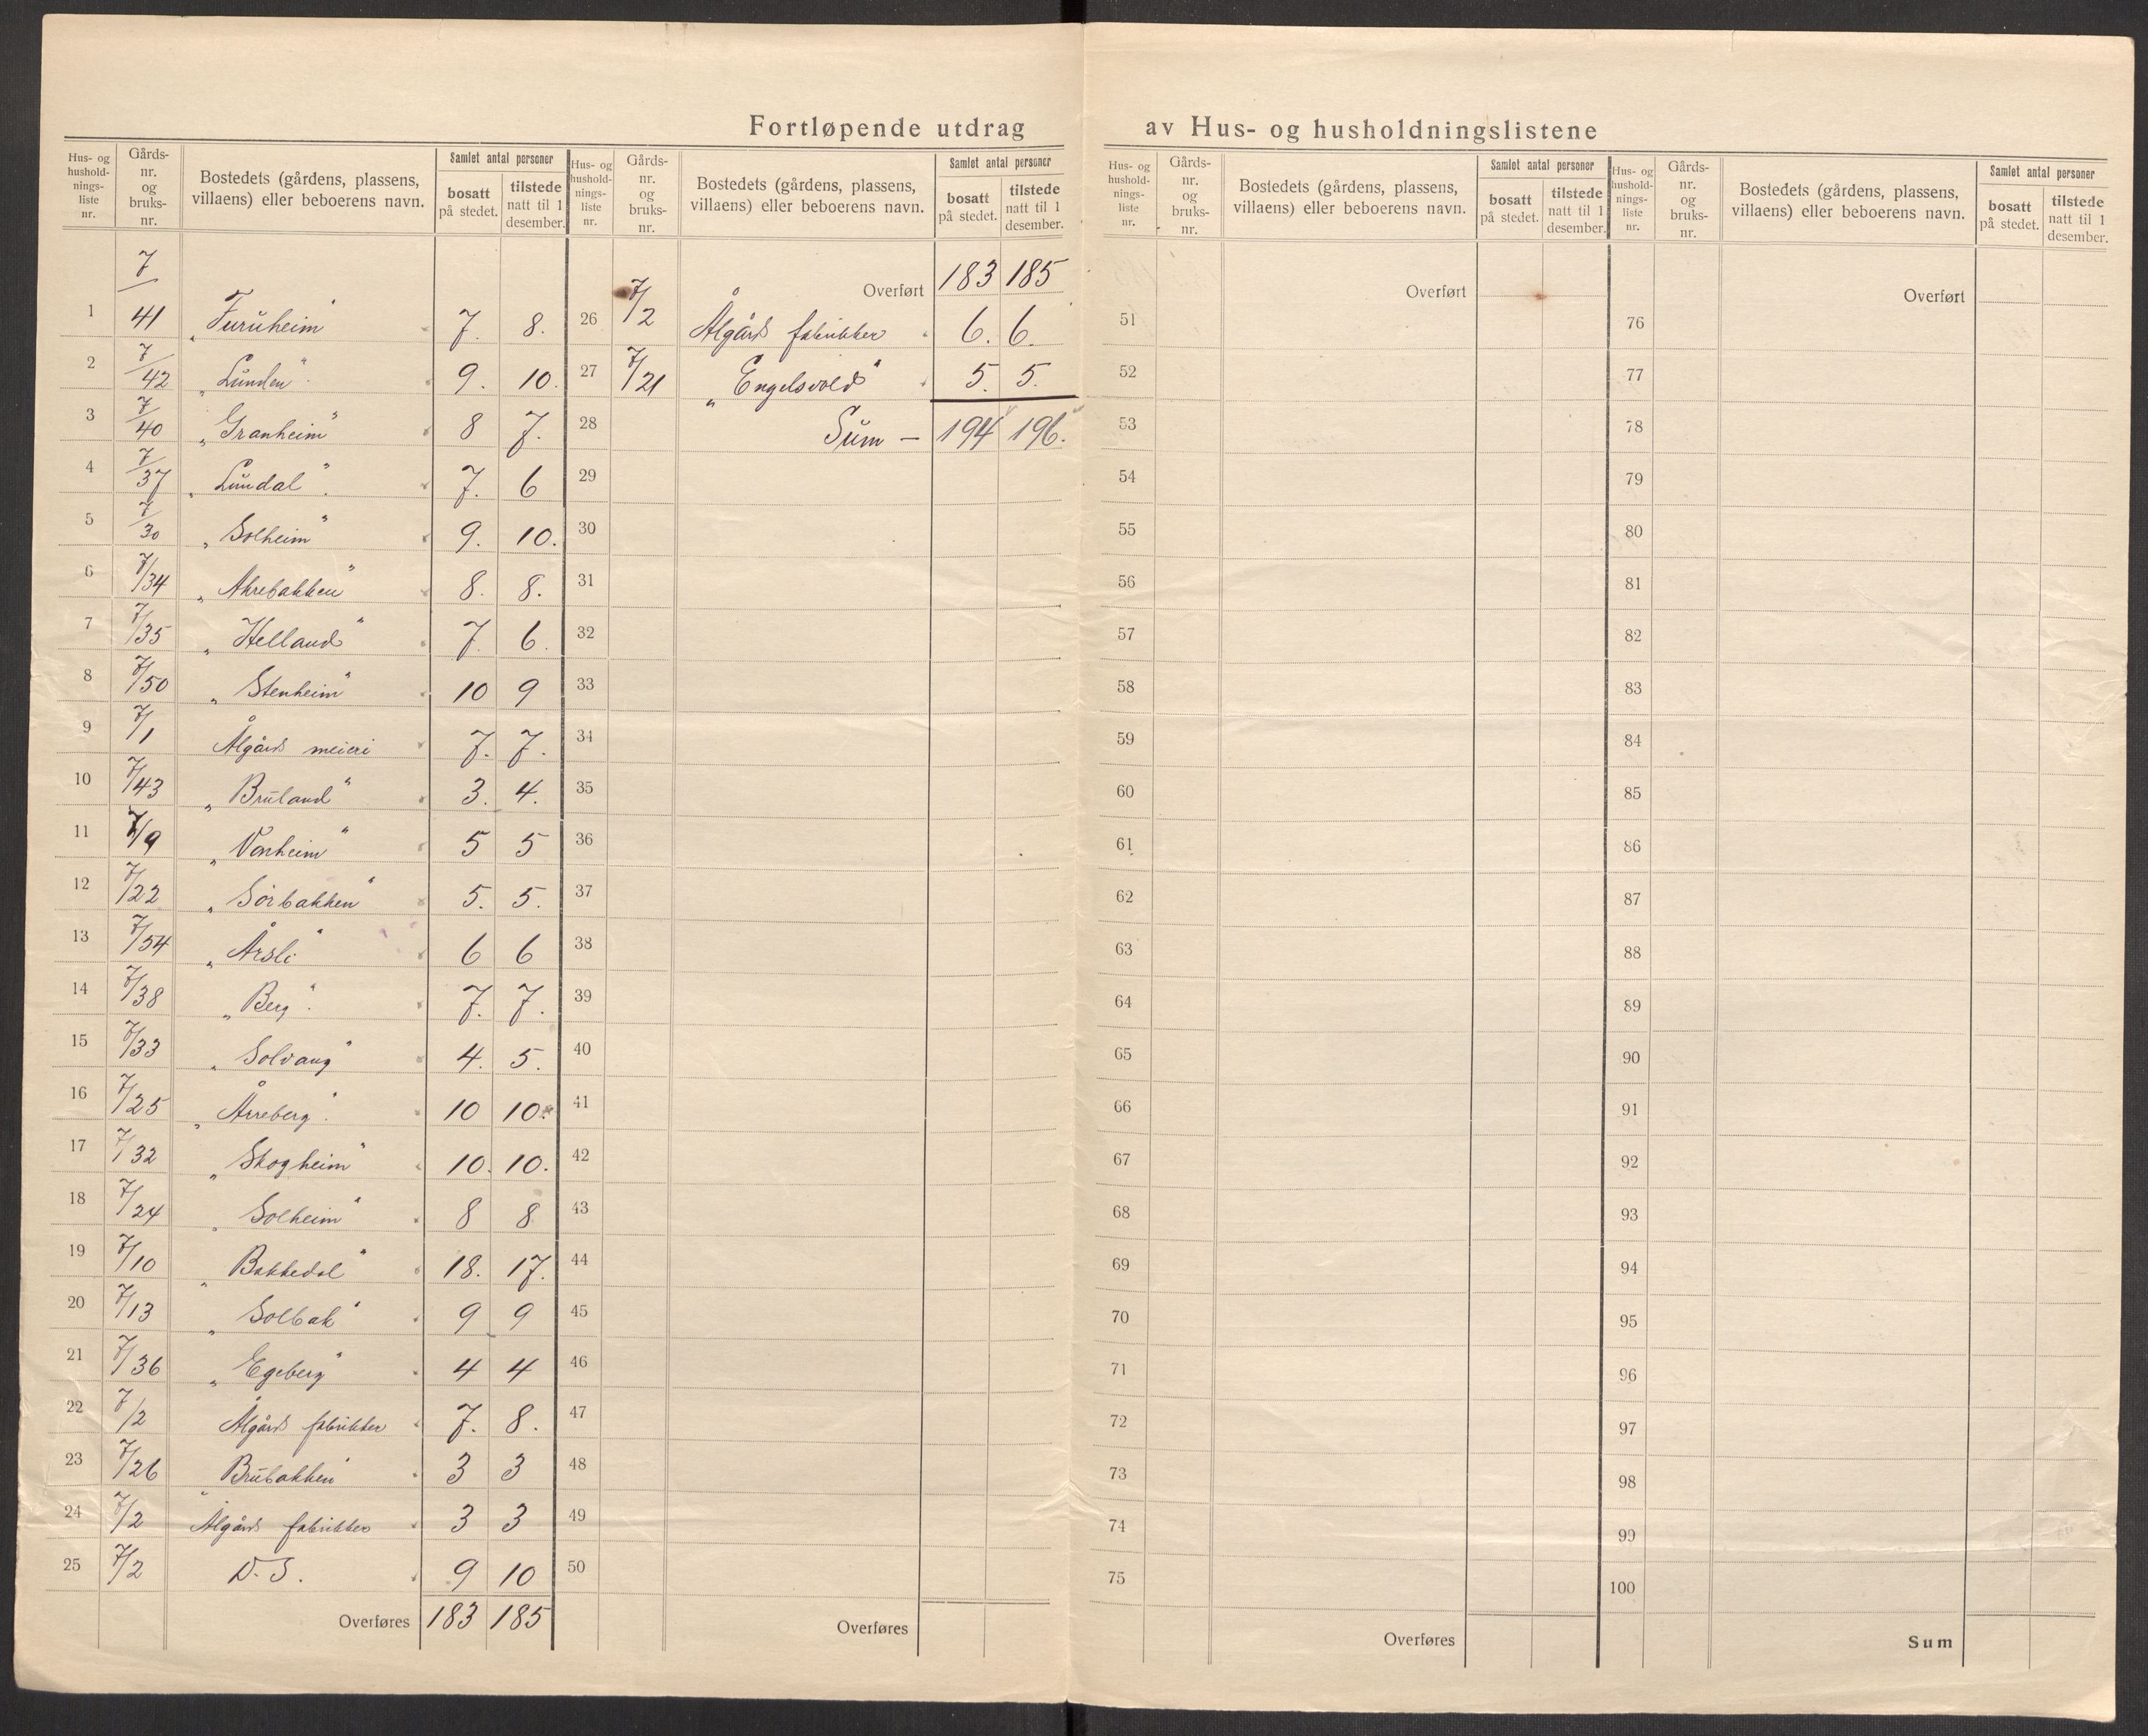 Fortløpende utdrag av Hus- og husholdningslistene
Hus- og husholdnings-liste nr. | Gårds-nr. og bruks-nr. | Bostedets (gårdens, plassens, villaens) eller beboerens navn. | Samlet antal personer | bosatt på stedet. | tilstede natt til 1 desember.
1 | 7/41 | „Furuheim“ | 7. | 8.
2 | 7/42 | „Lunden“ | 9. | 10.
3 | 7/40 | „Granheim“ | 8 | 7.
4 | 7/37 | „Lundal“ | 7. | 6
5 | 7/30 | „Solheim“ | 9. | 10.
6 | 7/34 | „Akrebakken“ | 8. | 8.
7 | 7/35 | „Helland“ | 7. | 6.
8 | 7/50 | „Stenheim“ | 10 | 9
9 | 7/1 | Ålgårds meieri | 7. | 7.
10 | 7/43 | „Bruland“ | 3. | 4.
11 | 7/9 | „Vonheim“ | 5 | 5
12 | 7/22 | „Sörbakken“ | 5. | 5.
13 | 7/54 | „Årsli“ | 6 | 6
14 | 7/38 | „Berg“ | 7. | 7.
15 | 7/33 | „Solvang“ | 4. | 5.
16 | 7/25 | „Årreberg“ | 10 | 10.
17 | 7/32 | „Skogheim“ | 10. | 10.
18 | 7/24 | „Solheim“ | 8 | 8
19 | 7/10 | „Bakkedal“ | 18. | 17.
20 | 7/13 | „Solbak“ | 9 | 9
21 | 7/36 | „Egeberg“ | 4 | 4
22 | 7/2 | Ålgårds fabrikker | 7. | 8.
23 | 7/26 | Brubakken | 3 | 3
24 | 7/2 | Ålgårds fabrikker | 3 | 3
25 | 7/2 | D. S. | 9 | 10
Overføres | 183 | 185
Hus- og husholdnings-liste nr. | Gårds-nr. og bruks-nr. | Bostedets (gårdens, plassens, villaens) eller beboerens navn. | Samlet antal personer | bosatt på stedet. | tilstede natt til 1 desember.
Overført | 183 | 185
26 | 7/2 | Ålgårds fabrikker | 6. | 6.
27 | 7/21 | „Engelsvold“ | 5. | 5.
28 | Sum — | 194 | 196.
29
30
31
32
33
34
35
36
37
38
39
40
41
42
43
44
45
46
47
48
49
50
Overføres
Hus- og husholdnings-liste nr. | Gårds-nr. og bruks-nr. | Bostedets (gårdens, plassens, villaens) eller beboerens navn. | Samlet antal personer | bosatt på stedet. | tilstede natt til 1 desember.
Overført
51
52
53
54
55
56
57
58
59
60
61
62
63
64
65
66
67
68
69
70
71
72
73
74
75
Overføres
Hus- og husholdnings-liste nr. | Gårds-nr. og bruks-nr. | Bostedets (gårdens, plassens, villaens) eller beboerens navn. | Samlet antal personer | bosatt på stedet. | tilstede natt til 1 desember.
Overført
76
77
78
79
80
81
82
83
84
85
86
87
88
89
90
91
92
93
94
95
96
97
98
99
100
Sum